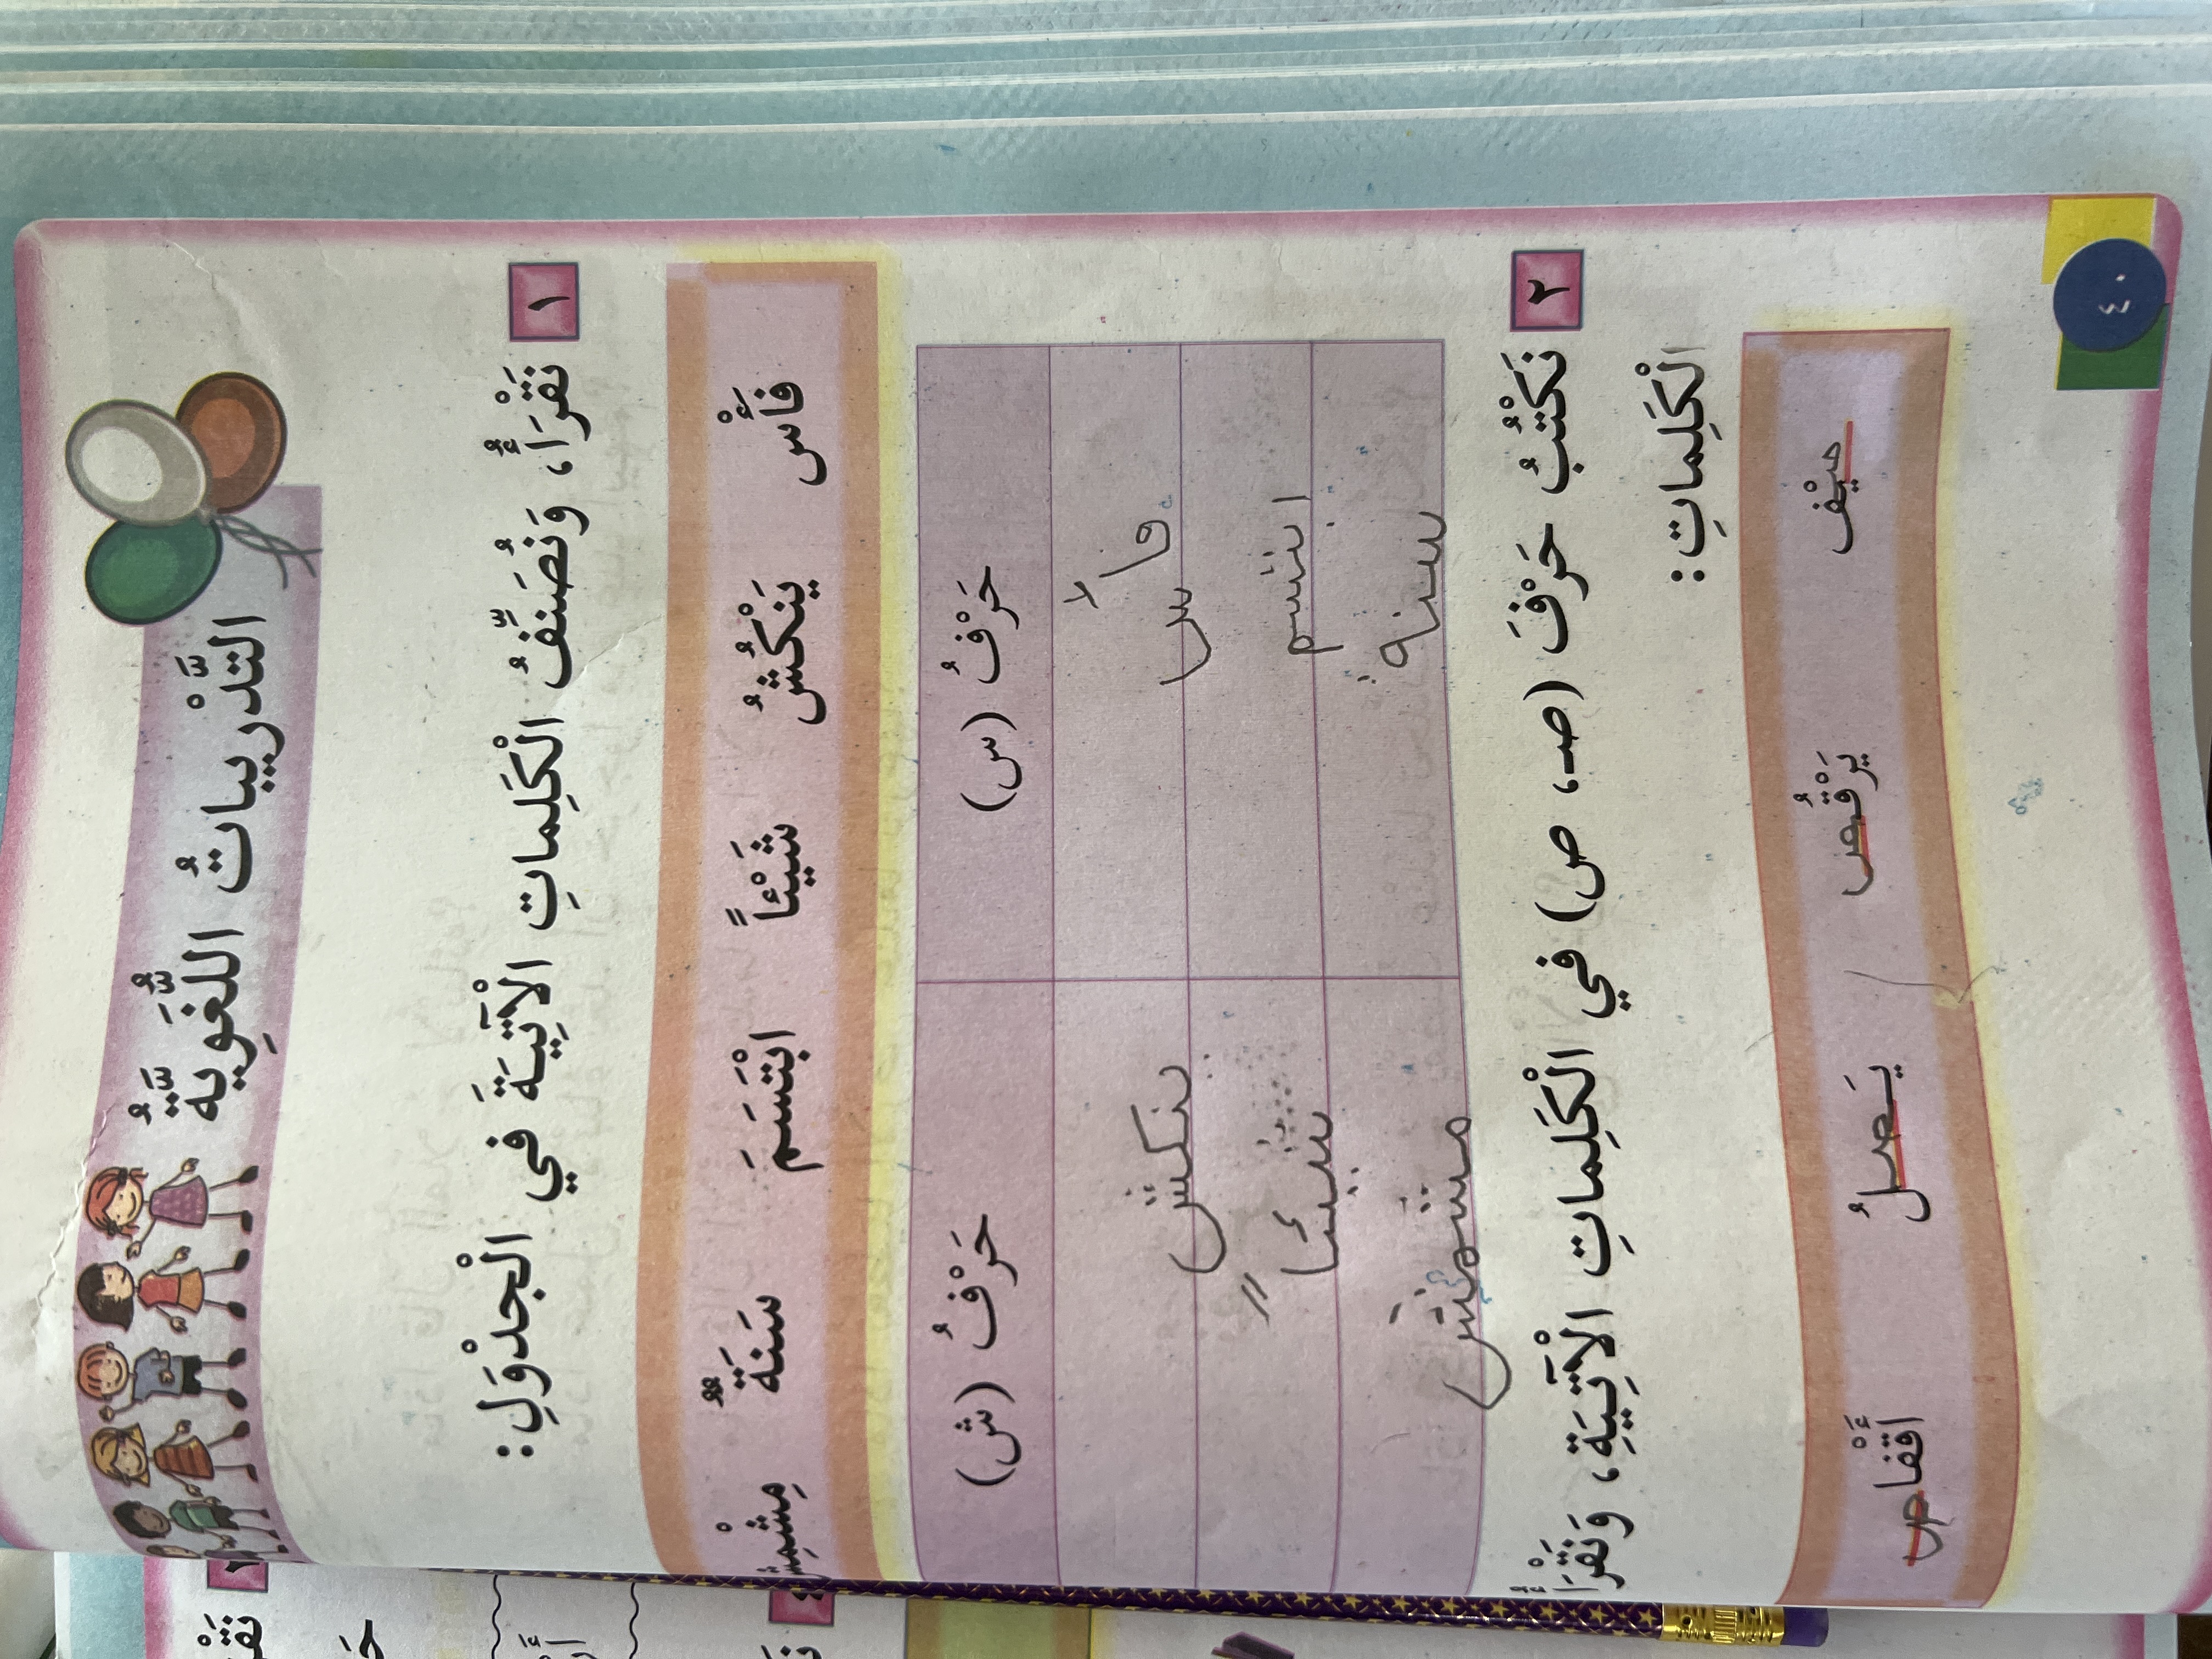 التَّدْريباتُ اللُّغَوِيَّةُ
١ نَقْرَأُ، وَنُصَنِّفُ الْكَلِماتِ الْآتِيَةَ في الْجدْوَلِ:
فَأْس يَنْكُشُ شَيْئاً ابْتَسَمَ سَنَةٌ مِشْمِش
حَرْفُ (س) حَرْفُ (ش)
فأس ينكش
ابتسم شيئاً
سنة مشمش
٢ نَكْتُبُ حَرْفَ (صـ، ص) في الْكَلِماتِ الْآتِيَةِ، وَنَقْرَأُ
الْكَلِماتِ:
صيْف يَرْقُص يَـصـلُ أَقْفاص
٤٠